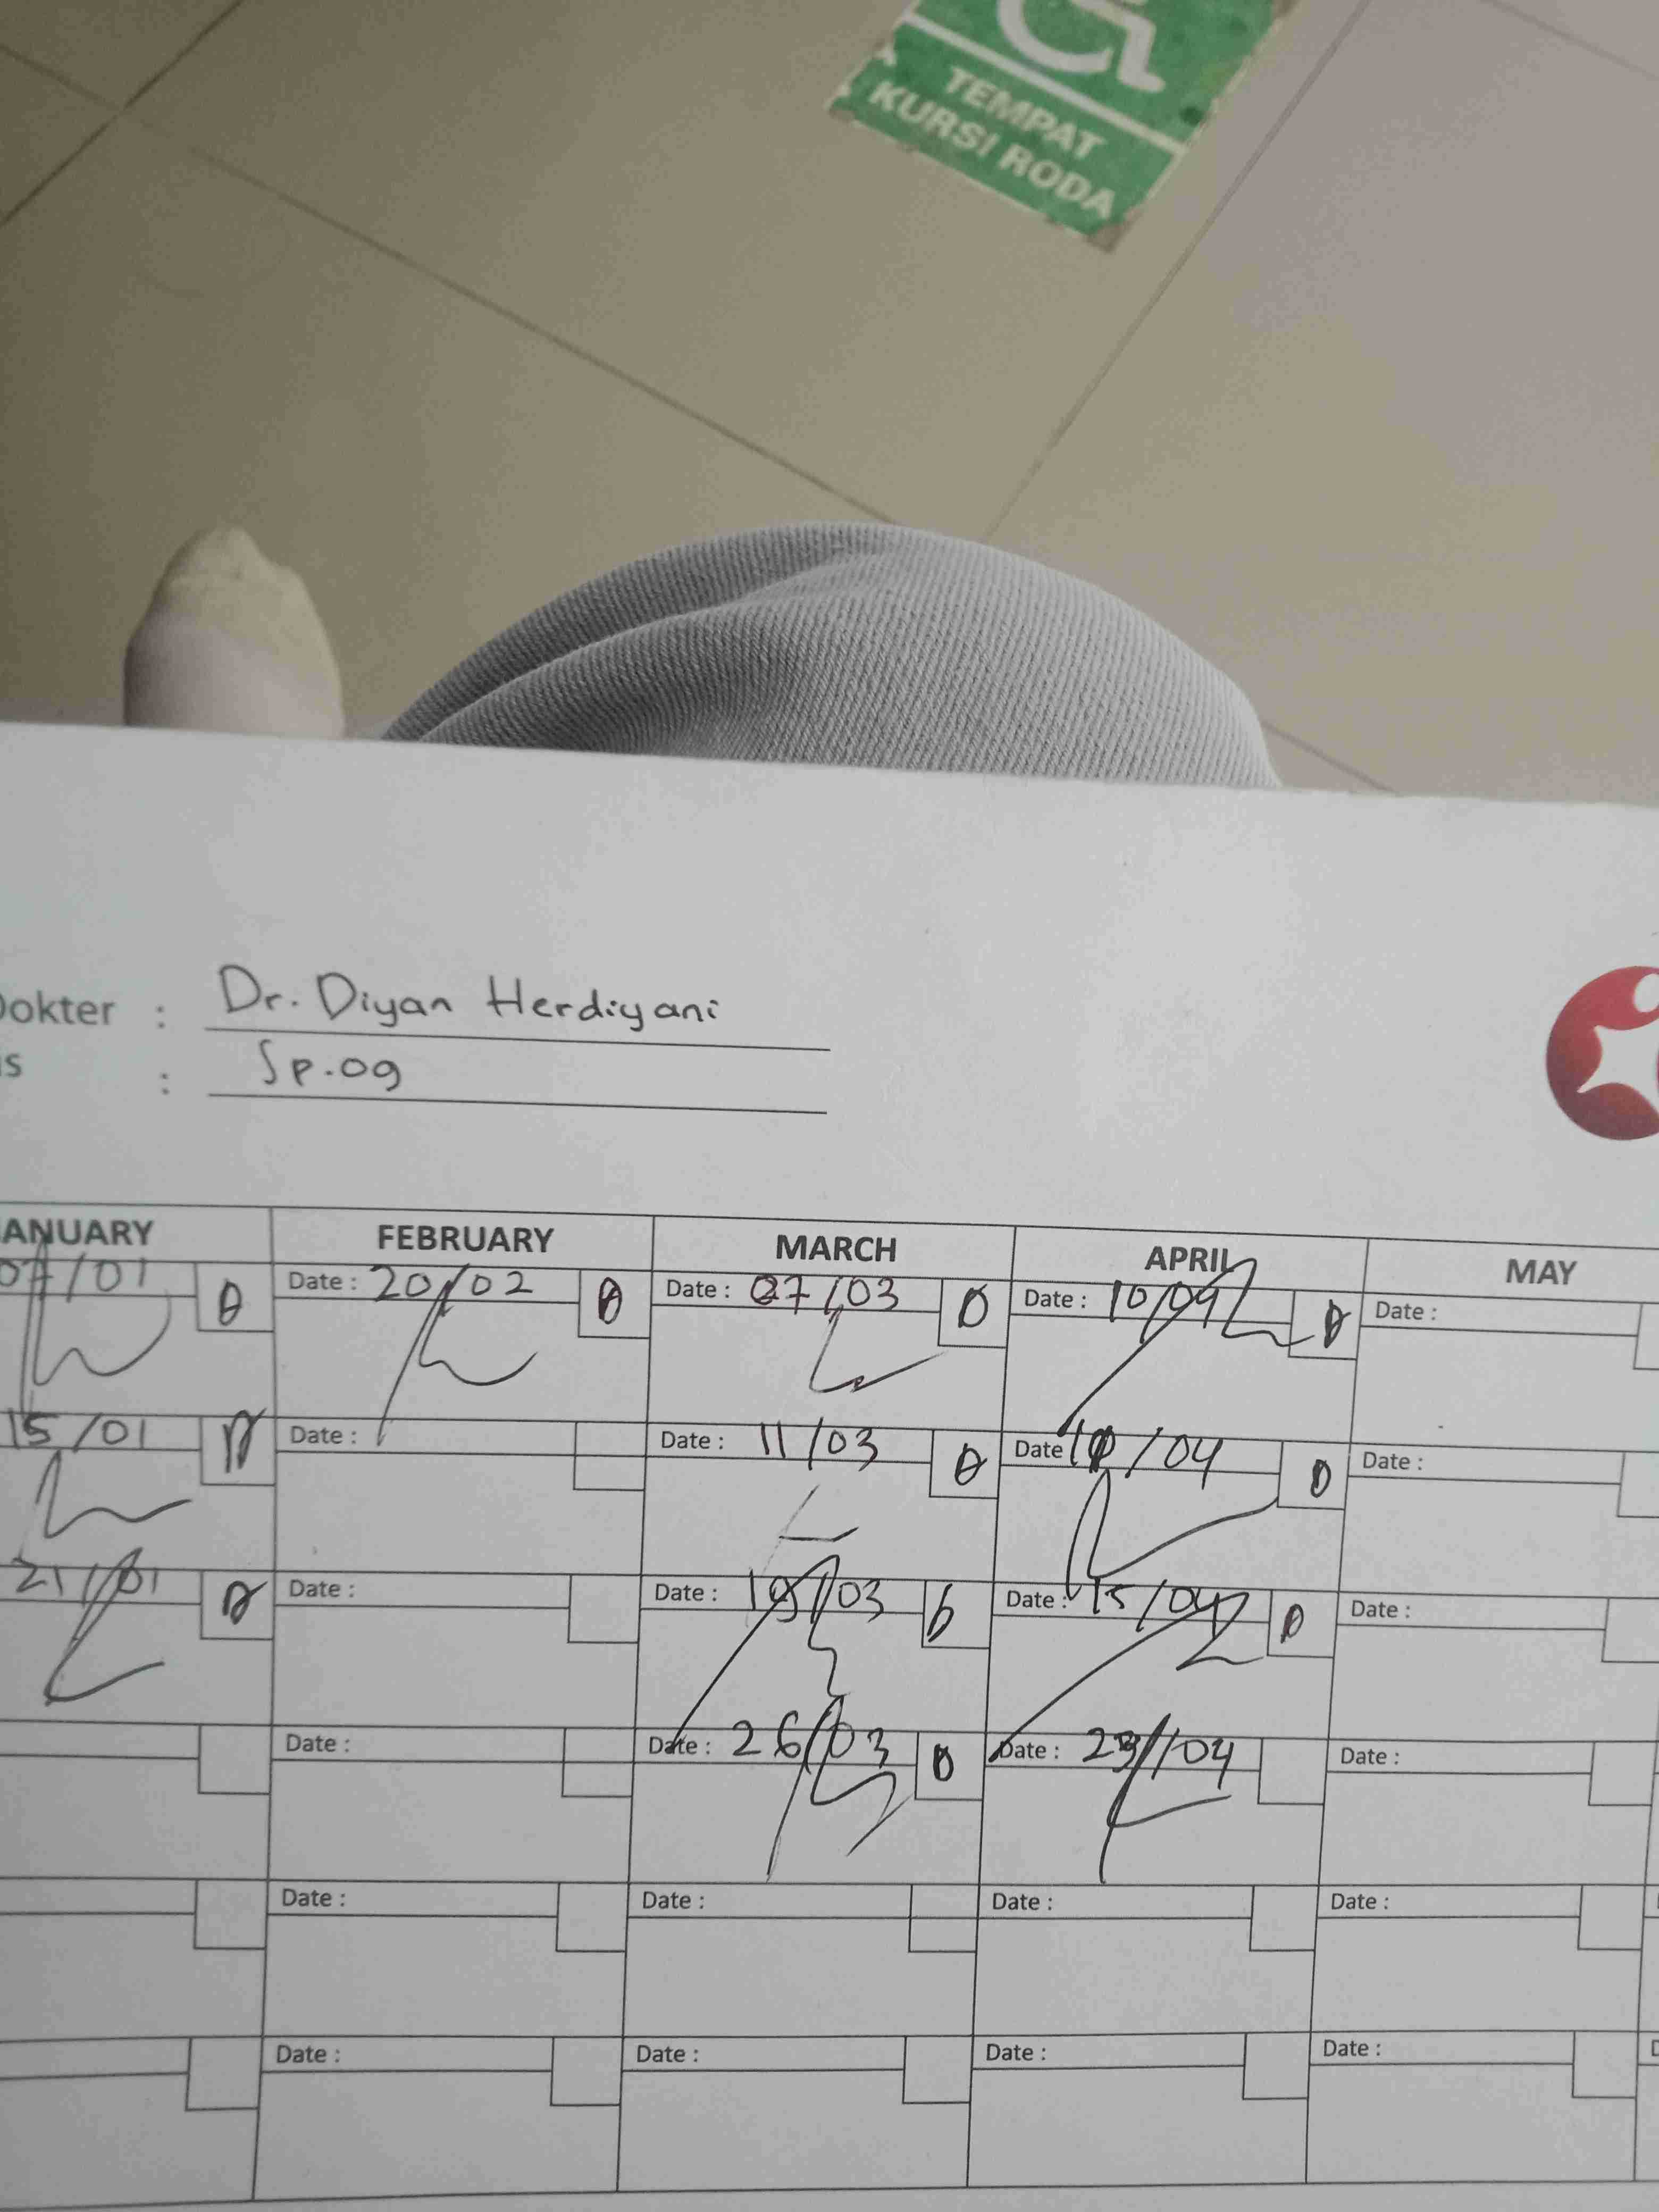 TEMPAT
KURSI RODA
Dokter : Dr. Diyan Herdiyani
is : Sp.og
JANUARY FEBRUARY MARCH APRIL MAY
07/01 Date : 20/02 Date : 07/03 Date : 10/04 Date :
15/01 Date : Date : 11/03 Date /04 Date :
21/01 Date : Date : 19/03 Date : 15/04 Date :
Date : Date : 26/03 Date : 23/04 Date :
Date : Date : Date : Date :
Date : Date : Date : Date :